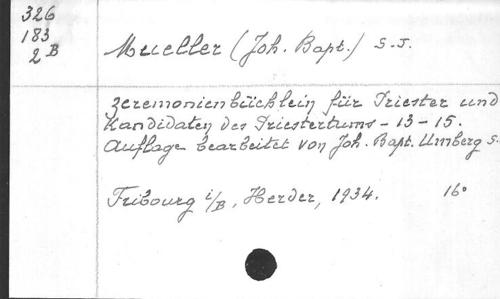 326
183
2 B
Mueller (Joh. Bapt.) S.J.
Zeremonienbüchlein für Priester und
Kandidaten des Priestertums - 13 - 15.
Auflage bearbeitet von Joh. Bapt. Umberg S.
Fribourg i/B, Herder, 1934. 16°